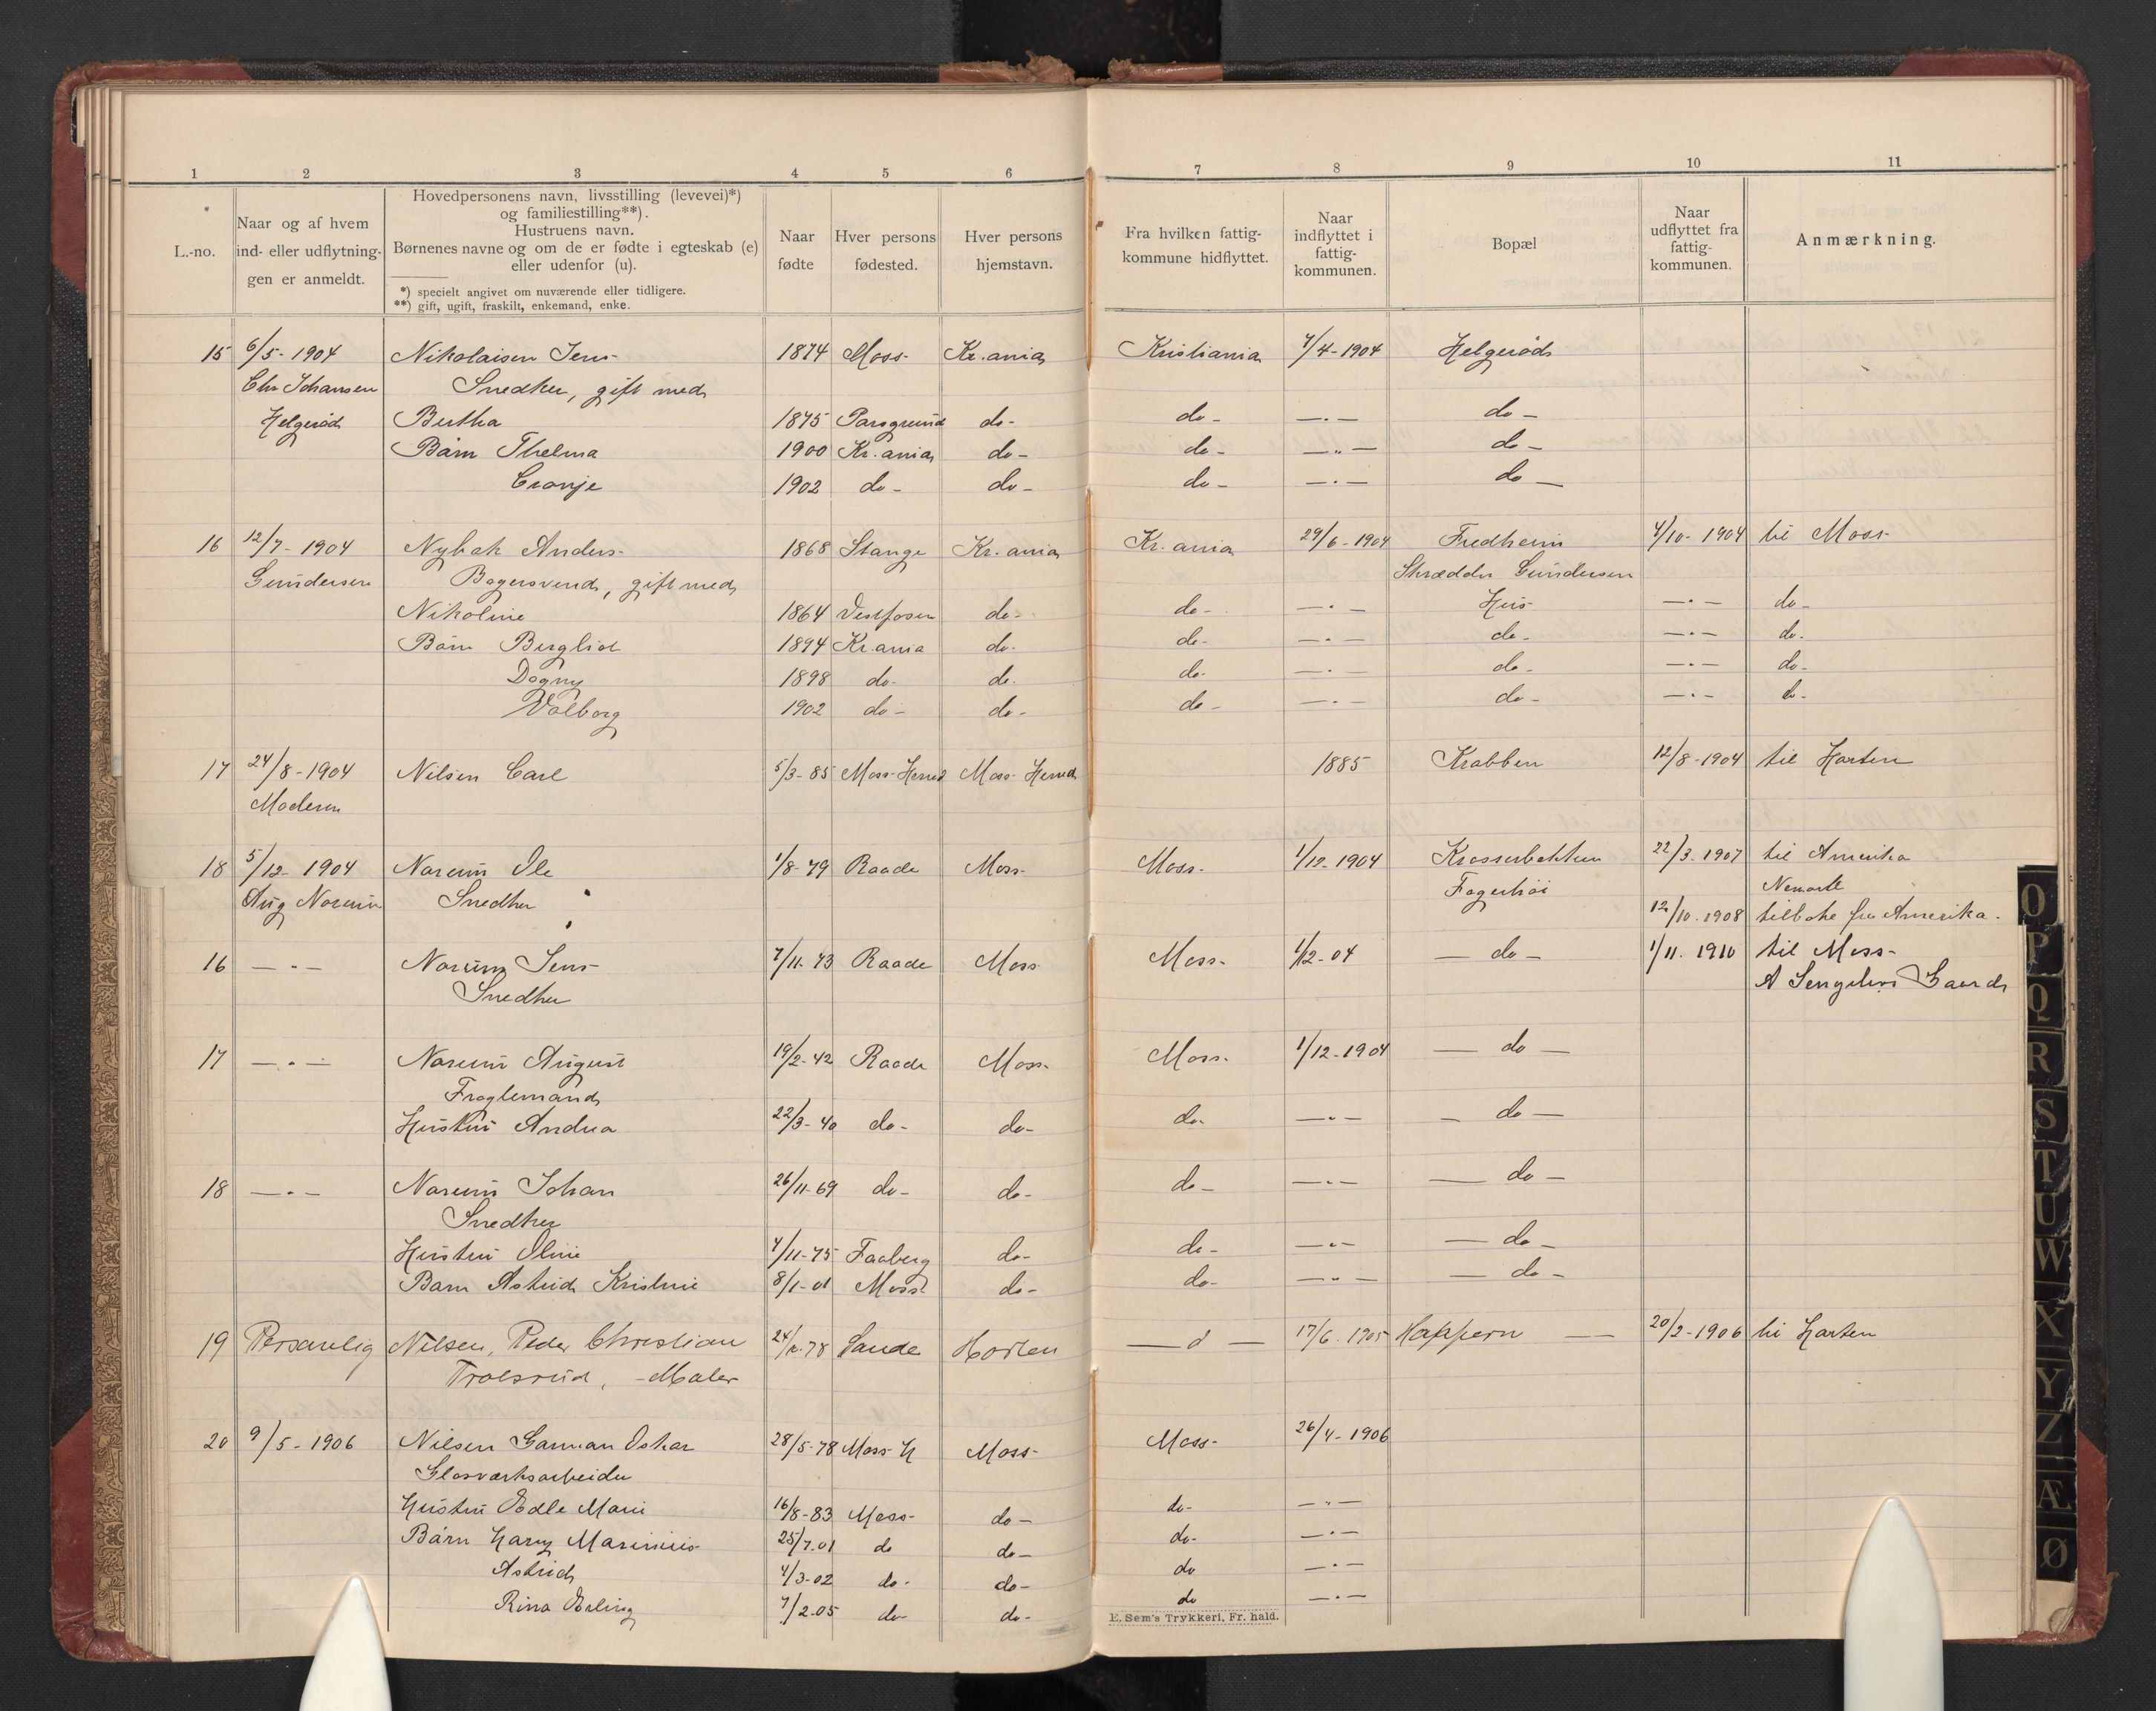 1 2 3 4 5 6 7 8 9 10 11
L.-no.
Naar og af hvem
ind- eller udflytnin-
gen er anmeldt.
Hovedpersonens navn, livsstilling (levevei)*)
og familiestilling**).
Hustruens navn.
Børnenes navne og om de er fødte i egteskab (e)
eller udenfor (u).
*) specielt angivet om nuværende eller tidligere.
**) gift, ugift, fraskilt, enkemand, enke.
Naar
fødte
Hver persons
fødested.
Hver persons
hjemstavn.
Fra hvilken fattig-
kommune hidflyttet.
Naar
indflyttet i
fattig-
kommunen.
Bopæl
Naar
udflyttet fra
fattig-
kommunen.
Anmærkning.
15 6/5-1904 Nikolaisen Jens- 1874 Moss- Kr.ania Kristiania 7/4-1904 Helgerød
Chr Johansen Snedker, gift med
Helgerød Bertha 1875 Porsgrund do- do- —.— do-
Børn Thelma 1900 Kr.ania do- do- —„— do-
Cronje 1902 do- do- do- —.— do-
16 12/7-1904 Nybak Anders- 1868 Stange Kr.ania Kr.ania 29/6-1904 Fredheim 4/10-1904 til Moss-
Gundersen Bagersvend, gift med Skrædder Gundersen
Nikoline 1864 Vestfosen do- do- —.— Hus- —.— do-
Børn Bergliot 1894 Kr.ania do- do- —.— do- —.— do-
Dagny 1898 do- do- do- —.— do- —.— do-
Valborg 1902 do- do- do- —.— do- —.— do-
17 24/8-1904 Nilsen Carl 5/3-85 Moss-Herred Moss-Herred 1885 Krabben 12/8-1904 til Horten
Moderen
18 5/12-1904 Norum Ole 1/8-79 Raade Moss- Moss- 1/12-1904 Krosserbakken 22/3-1907 til Amerika
Aug Norum Snedker Fagerhøi
12/10-1908 tilbake fra Amerika.
16 —.— Norum Jens- 7/11-73 Raade Moss- Moss- 1/12-04 — do — 1/11.1910 til Moss-
Snedker Gaard
17 —.— Norum August 19/2-42 Raade Moss- Moss- 1/12-1904 — do —
Fragtemand
Hustru Andrea 22/3-40 do- do- do- —„— — do —
18 —.— Norum Johan 26/11-69 do- do- do- —„— — do —
Snedker
Hustru Oline 4/11-75 Faaberg do- do- —„— — do —
Barn Astrid Kristine 8/1-01 Moss do- do- —„— — do —
19 Personlig Nilsen, Peder Christian 78 Sande Horten — d — 17/6.1905 Happern — 20/2-1906 til Horten
Trolsrud, -Maler
20 9/5-1906 Nilsen Garman Oskar 28/5-78 Moss-H Moss- Moss- 26/4-1906
Glasværksarbeider
Hustru Edle Marie 16/8-83 Moss- do- do- —„—
Børn Harry Marinius 25/7.01 do do- do- —.—
Astrid 4/3-02 do- do- do —.—
Rina Erling 7/2.05 do- do- do —.—
E. Sem's Trykkeri, Fr. hald.
O
P
Q
R
S
T
U
W
X
Y
Z
Æ
Ø